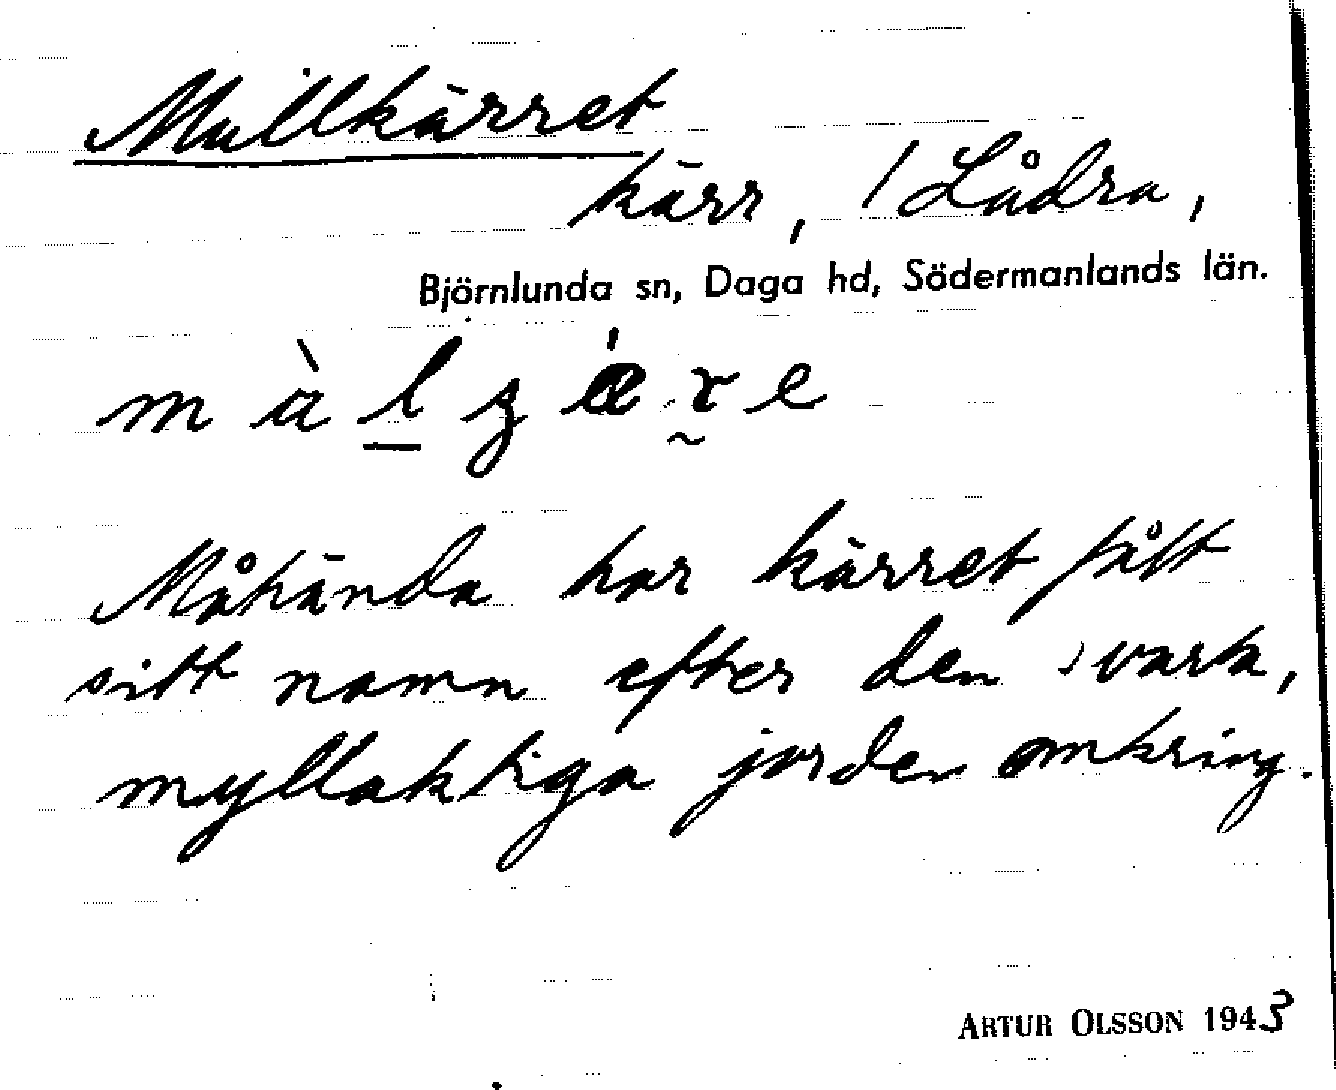 Mullkärret
kärr, 1 Lådra,
Björnlunda sn, Daga hd, Södermanlands län.
Måhända har kärret fått
sitt namn efter den svarta,
myllaktiga jorden omkring.
ARTUR OLSSON 1943